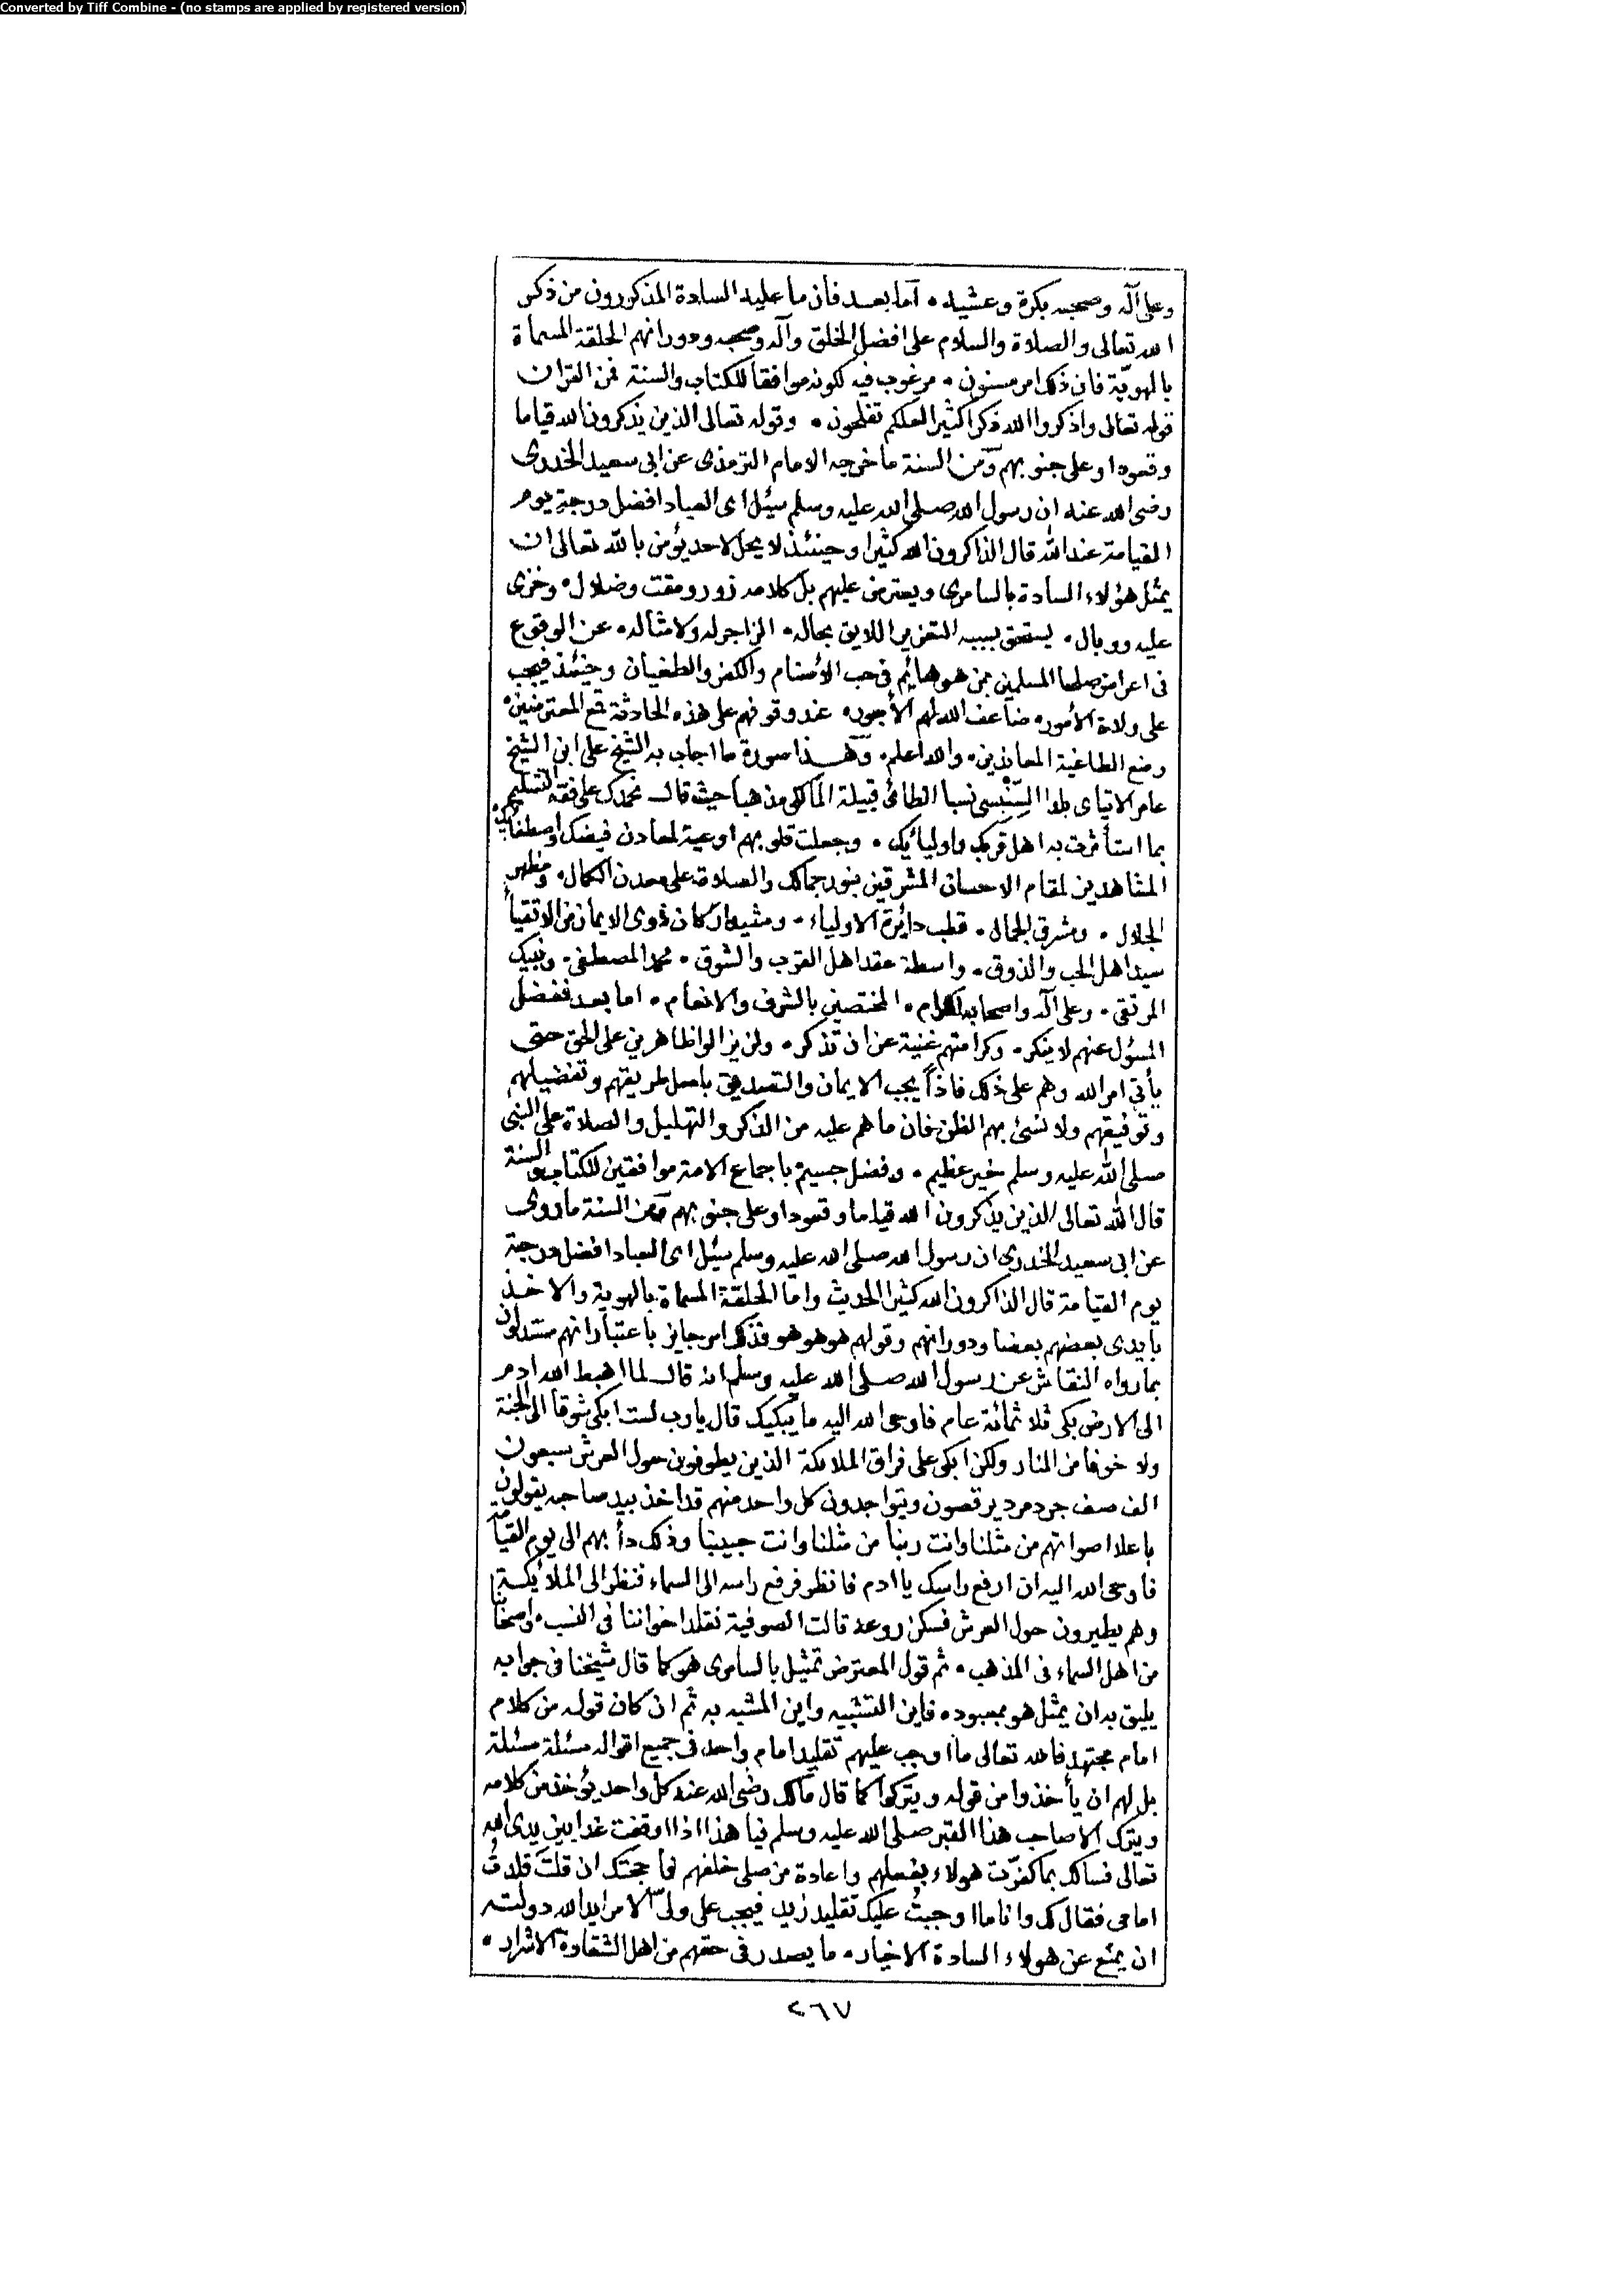 Converted by Tiff Combine - (no stamps are applied by registered version)
وعلى آله وصحبه بكرة وعشيه • اما بعد فأن ما عليه السادة المذكورون من ذكر
الله تعالى والصلاة والسلام على افضل الخلق وآله وصحبه ودورانهم الحلقة المسماة
بالهويّة فان ذلك امر مسنون • مرغوب فيه لكونه موافقا للكتاب والسنة فمن القران
قوله تعالى واذكروا الله ذكرا كثيرا لعلكم تفلحون • وقوله تعالى الذين يذكرون الله قياما
وقعودا وعلى جنوبهم ومن السنة ما خرجه الامام الترمذى عن ابى سعيد الخدرى
رضى الله عنه ان رسول الله صلى الله عليه وسلم سئل اى العباد افضل درجة يوم
القيامة عند الله قال الذاكرون الله كثيرا وحينئذ لا يحل لاحد يؤمن بالله تعالى ان
يمثل هؤلاء السادة بالسامرى ويعترض عليهم بل كلامه زور ومقت وضلال • وخزى
عليه ووبال • يستحق بسببه التعزير اللايق بحاله • الزاجر له ولامثاله • عن الوقوع
فى اعراض صلحا المسلمين ممن هو هائم فى حب الأصنام والكفر والطغيان وحينئذ فيجب
على ولاة الأمور • ضاعف الله لهم الأجور • عند وقوفهم على هذه الحادثة قمع المعترضين •
وضع الطاغية المعاندين • والله اعلم • وهذا صورة ما اجاب به الشيخ على ابن الشيخ
عامر الاتياى بلدا السِّنْبِسى نسبا الطائى قبيلة المالكى مذهبا حيث قال نحمدك على فقه التسليم •
بما استأثرت به اهل قربك واوليائك • وجعلت قلوبهم اوعية لمعادن فيضك واصطفائك
المشاهدين لمقام الاحسان المشرقين بنور جمالك والصلاة على معدن الكمال • ومظهر
الجلال • ومشرق الجمال • قطب دائرة الاولياء • ومشيد اركان ذوى الايمان من الاتقيا
سيد اهل الحب والذوق • واسطة عقد اهل القرب والشوق • محمد المصطفى • ونبيك
المرتقى • وعلى آله واصحابه الكرام • المختصين بالشرف والانعام • اما بعد ففضل
المسؤل عنهم لا ينكر • وكرامتهم غنية عن ان تذكر • ولن يزالوا ظاهرين على الحق حتى
يأتى امر الله وهم على ذلك فاذًا يجب الايمان والتصديق باصل طريقهم وتفضيلهم
وتوفيقهم ولا نسئ بهم الظن فان ما هم عليه من الذكر والتهليل والصلاة على النبى
صلى الله عليه وسلم خير عظيم • وفضل جسيم باجماع الامة موافقين للكتاب والسنة
قال الله تعالى الذين يذكرون الله قياما وقعودا وعلى جنوبهم ومن السنة ما روى
عن ابى سعيد الخدرى ان رسول الله صلى الله عليه وسلم سئل اى العباد افضل درجة
يوم القيامة قال الذاكرون الله كثيرا الحديث واما الحلقة المسماة بالهوية والاخذ
بايدى بعضهم بعضا ودورانهم وقولهم هو هو هو فذلك امر جايز باعتبار انهم مستدلون
بما رواه النقاش عن رسول الله صلى الله عليه وسلم انه قال لما اهبط الله ادم
الى الارض بكى ثلاثمائة عام فاوحى الله اليه ما يبكيك قال يا رب لست ابكى شوقا الى الجنة
ولا خوفا من النار ولكن ابكى على فراق الملائكة الذين يطوفون حول العرش سبعون
الف صف جرد مرد يرقصون ويتواجدون كل واحد منهم قد اخذ بيد صاحبه يقولون
باعلا اصواتهم من مثلنا وانت ربنا من مثلنا وانت حبيبنا وذلك دأبهم الى يوم القيامة
فاوحى الله اليه ان ارفع راسك يا ادم فانظر فرفع راسه الى السماء فنظر الى الملائكة
وهم يطيرون حول العرش فسكن روعه قالت الصوفية نقلد اخواننا فى النسب • واصحابنا
من اهل السماء فى المذهب • ثم قول المعترض تمثيل بالسامرى هو كما قال شيخنا فى جوابه
يليق به ان يمثل هو بمعبوده فاين التشبيه واين المشبه به ثم ان كان قوله من كلام
امام مجتهد فالله تعالى ما اوجب عليهم تقليد امام واحد فى جميع اقواله مسئلة مسئلة
بل لهم ان يأخذوا من قوله ويتركوا كما قال مالك رضى الله عنه كل واحد يؤخذ من كلامه
ويترك الا صاحب هذا القبر صلى الله عليه وسلم فيا هذا اذا اوقفت غدا بين يدى الله
تعالى فسالك بما كفرّت هولاء بفعلهم واعادة من صلى خلفهم فما حجتك ان قلت قلدت
امامى فقال لك وانا ما اوجبت عليك تقليد زيد فيجب على ولى الامر ايد الله دولته
ان يمنع عن هولاء السادة الاخيار • ما يصدر فى حقهم من اهل الشقاوة الاشرار •
٢٦٧